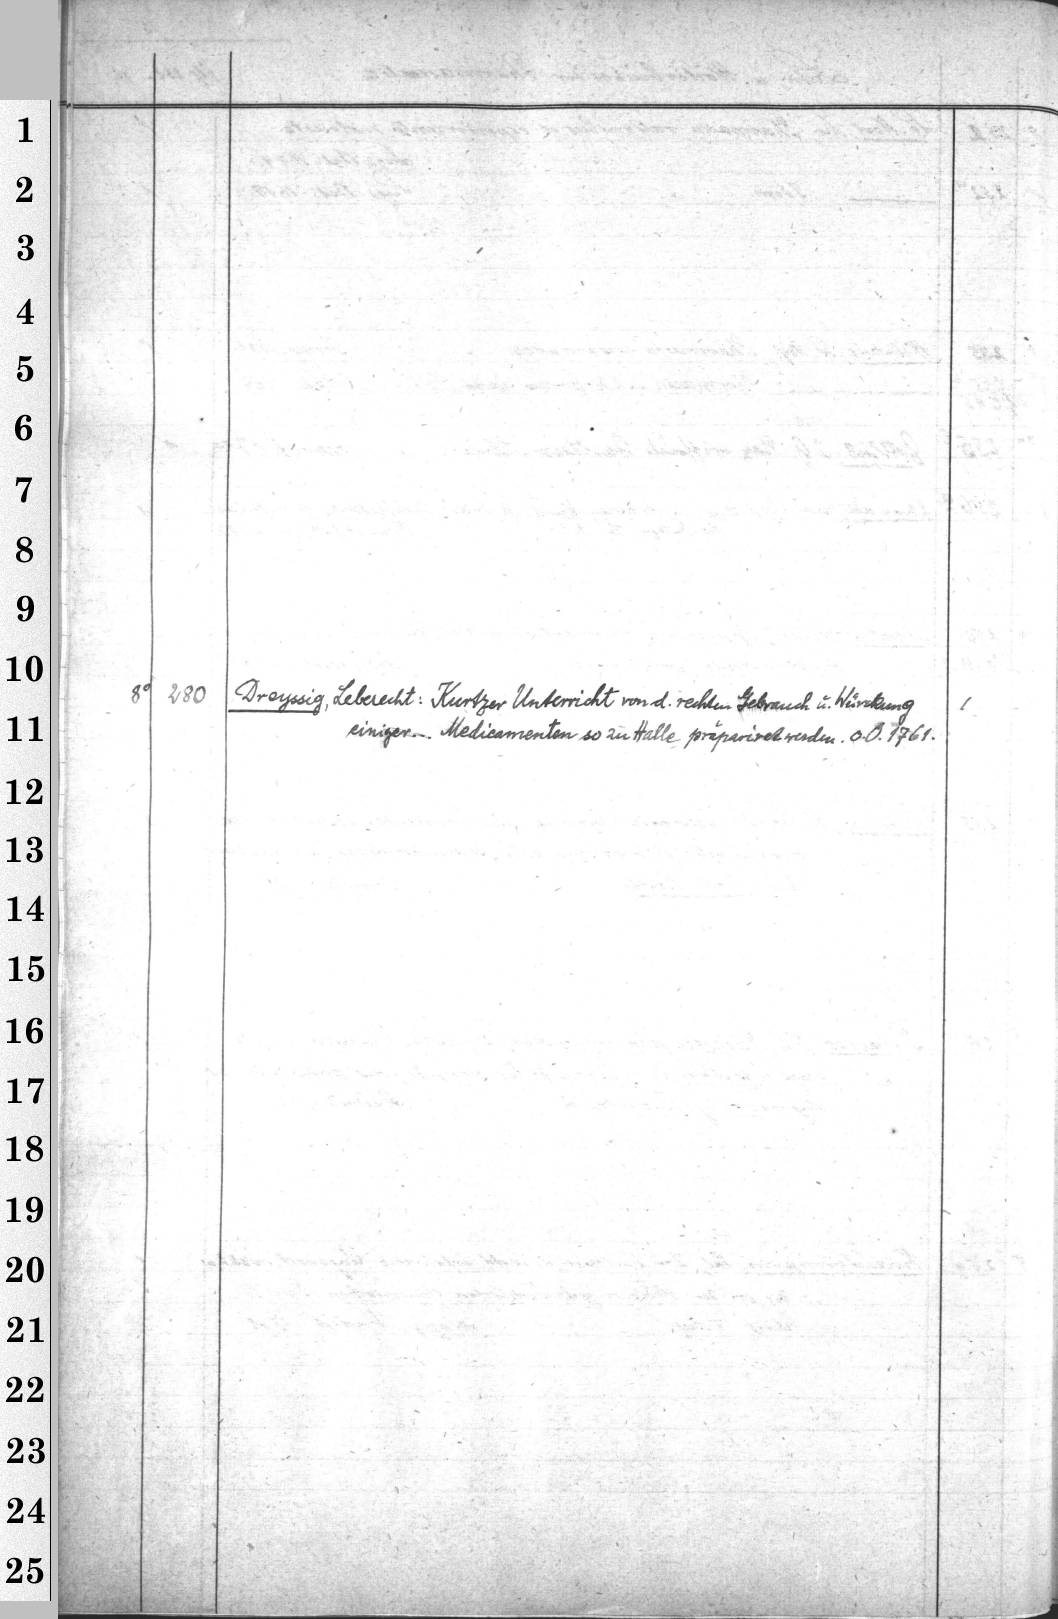 1
2
3
4
5
6
7
8
9
10
8° 280 Dreyssig, Leberecht: Kurtzer Unterricht von d. rechten Gebrauch u. Würckung 1
11
einiger... Medicamenten so zu Halle präpariret werden. o.O. 1761.
12
13
14
15
16
17
18
19
20
21
22
23
24
25